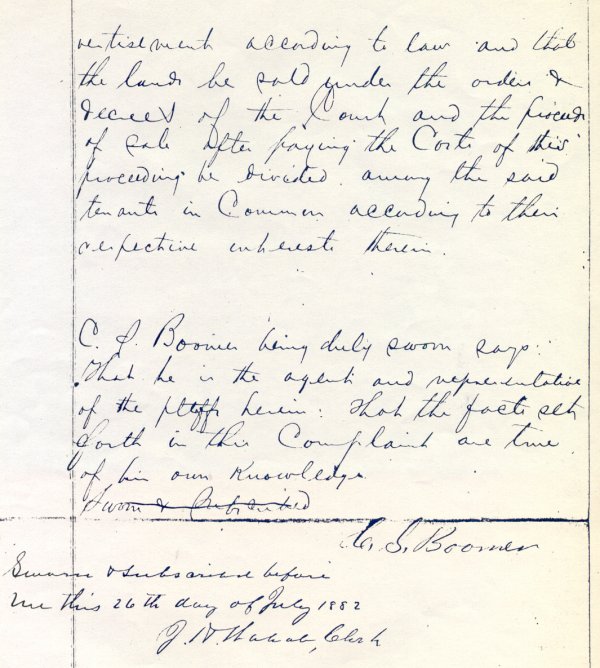 vertisement according to law and that
the lands be sold under the orders &
decrees of the Court and the proceeds
of sale after paying the Costs of this
proceeding be divided among the said
tenants in Common according to their
respective interests therein.
C. S. Boomer being duly sworn says:
That he is the agent and representative
of the pltffs herein: That the facts set
forth in this Complaint are true
of his own knowledge
Sworn & Subscribed
C. S. Boomer
Sworn & subscribed before
me this 26th day of July 1882
Clerk